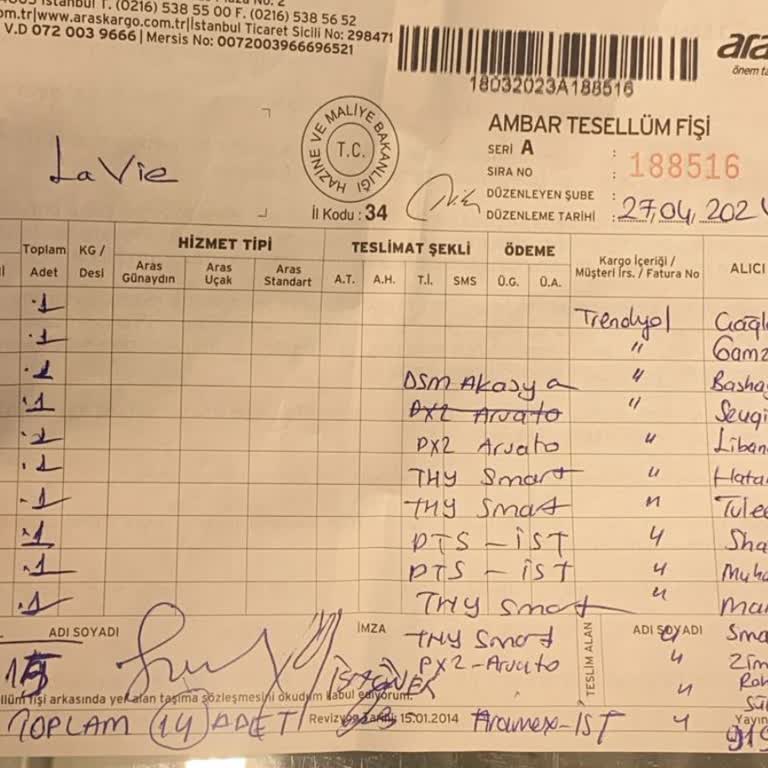 İstanbul T. (0216) 538 55 00 F. (0216) 538 56 52
om.tr|www.araskargo.com.tr|İstanbul Ticaret Sicili No: 298471
V.D 072 003 9666 | Mersis No: 0072003966696521
18032023A188516
ara
önem ta
La Vie
HAZİNE VE MALİYE BAKANLIĞI
T.C.
İl Kodu : 34
AMBAR TESELLÜM FİŞİ
SERİ A :
SIRA NO : 188516
DÜZENLEYEN ŞUBE :
DÜZENLEME TARİHİ : 27,04,2024
Toplam Adet KG / Desi HİZMET TİPİ TESLİMAT ŞEKLİ ÖDEME Kargo İçeriği / Müşteri İrs. / Fatura No ALICI
Aras Günaydın Aras Uçak Aras Standart A.T. A.H. T.İ. SMS Ü.G. Ü.A.
1 Trendyol
1 " Gamz
1 DSM Akasya "
1 PX2 Arvato " Sevgi
PX2 Arvato " Liban
1 THY Smart " Hata
1 THY Smart " Tule
1 PTS - İST " Sha
1 PTS - İST " Muha
1 THY Smart " Ma
ADI SOYADI İMZA THY Smart TESLİM ALAN ADI SOYADI Sma
PX2-Arvato " Zim
llüm fişi arkasında yer alan taşıma sözleşmesini okudum kabul ediyorum.
"
TOPLAM 14 ADET Revizyon Tarihi: 15.01.2014 Aramex-İST " Yayın